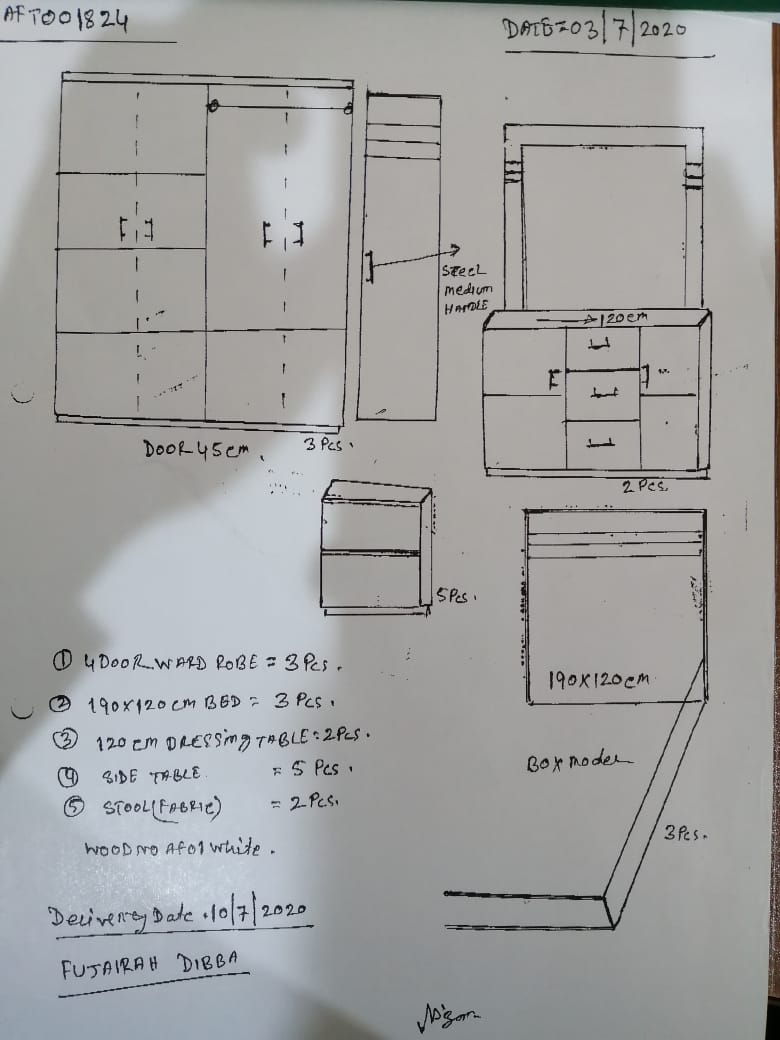 AFT001824
DATE=03/7/2020
STEEL
medium
HANDLE
120cm
DOOR 45cm.
3 Pcs.
2 Pcs.
5 Pcs.
190X120cm
BOX model
3 Pcs.
① 4 DOOR WARD ROBE = 3 Pcs.
② 190X120 cm BED = 3 Pcs.
③ 120 cm DRESSing TABLE = 2 Pcs.
④ SIDE TABLE = 5 Pcs.
⑤ STOOL (FABRIC) = 2 Pcs.
WOOD NO AF01 white.
Delivery Date. 10/7/2020
FUJAIRAH DIBBA